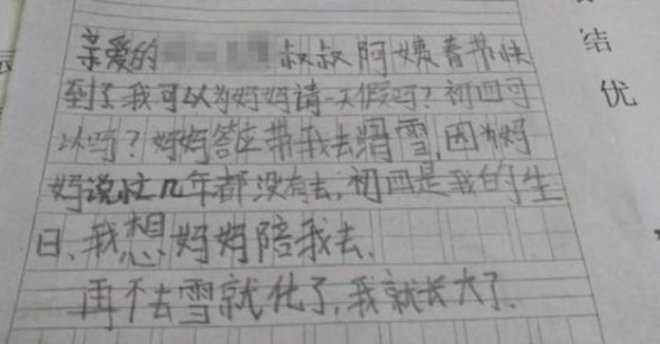 亲爱的 叔叔阿姨春节快
到了我可以为妈妈请一天假吗？初四可
以吗？妈妈答应带我去滑雪，因为妈
妈说忙几年都没有去，初四是我的生
日、我想妈妈陪我去、
再不去雪就化了，我就长大了、
结
优